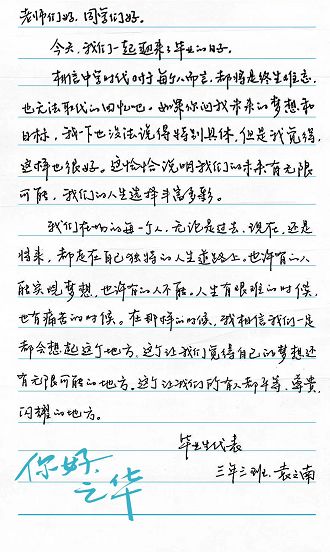 老师们好，同学们好。
今天，我们一起迎来了毕业的日子。
相信中学时代对于每个人而言，都将是终生难忘、
也无法取代的回忆吧。如果你问我未来的梦想和
目标，我一下也没法说得特别具体，但是我觉得，
这样也很好。这恰恰说明我们的未来有无限
可能，我们的人生选择丰富多彩。
我们在场的每一个人，无论是过去、现在，还是
将来，都走在自己独特的人生道路上。也许有的人
能实现梦想，也许有的人不能。人生有艰难的时候，
也有痛苦的时候。在那样的时候，我相信我们一定
都会想起这个地方，这个让我们觉得自己的梦想还
有无限可能的地方。这个让我们所有人都平等、尊贵、
闪耀的地方。
毕业生代表
三年三班、袁之南
你好，
之华